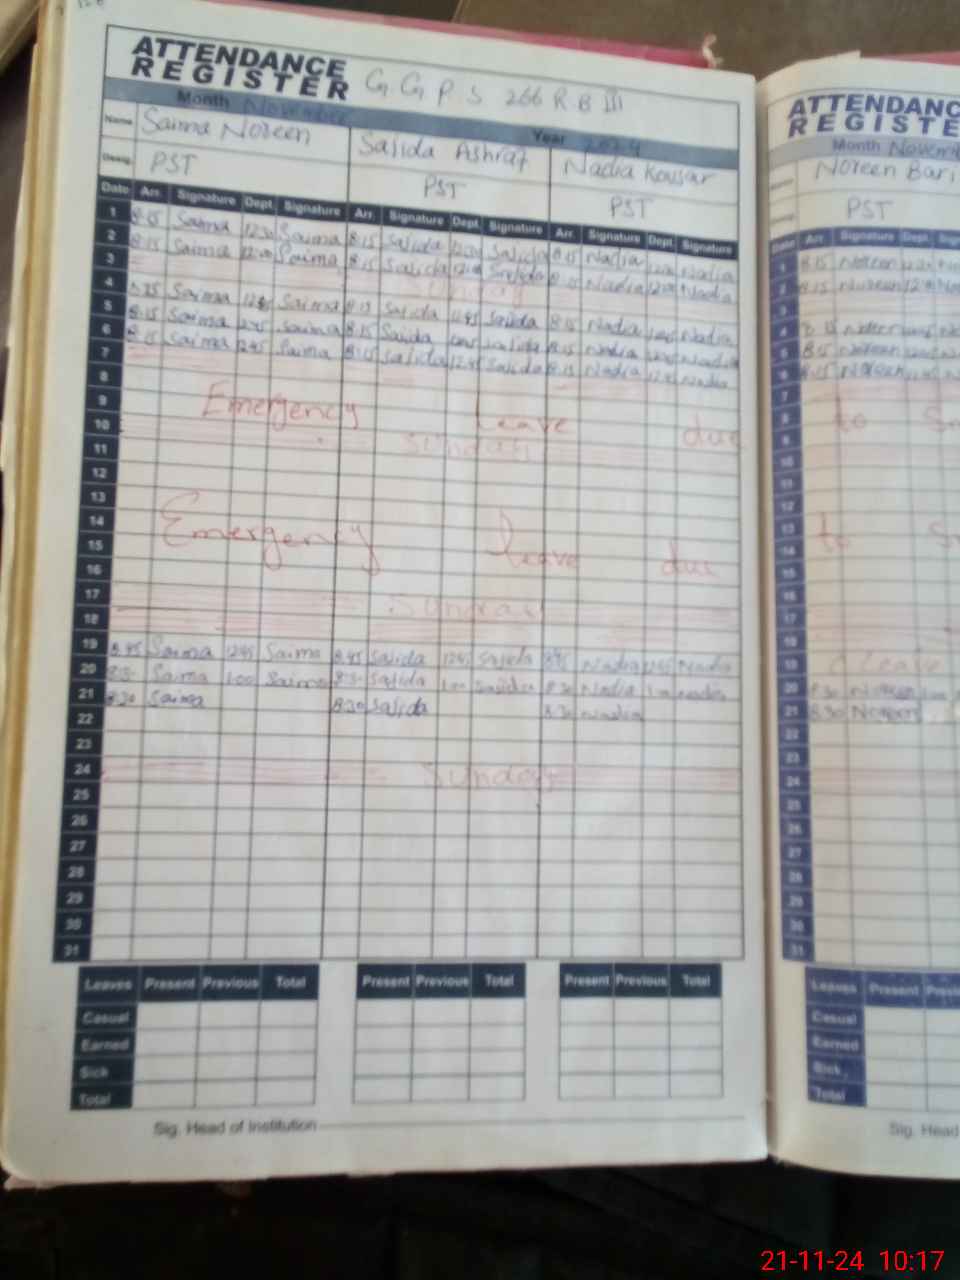 ATTENDANCE
REGISTER G. G P. S 266 R B III
Month November Year 2024
Name Saima Noreen Sajida Ashraf Nadia Kousar
Desig. PST PST PST
Date Arr. Signature Dept. Signature Arr. Signature Dept. Signature Arr. Signature Dept. Signature
1 8:15 Saima 12:30 Saima 8:15 Sajida Sajida 8:15 Nadia Nadia
2 8:15 Saima Saima 8:15 Sajida Sajida Nadia Nadia
3 Sunday
4 Saima Saima 8:15 Sajida Sajida 8:15 Nadia Nadia
5 8:15 Saima Saima 8:15 Sajida Sajida 8:15 Nadia Nadia
6 8:15 Saima 12:45 Saima 8:15 Sajida 12:45 Sajida 8:15 Nadia 12:45 Nadia
7
8 Emergency Leave due
9
10 Sunday
11
12
13
14 Emergency leave due
15
16
17 Sunday
18
19 8:45 Saima 12:45 Saima 8:45 Sajida 12:45 Sajida 8:45 Nadia 12:45 Nadia
20 Saima 1:00 Saima Sajida 1:00 Sajida 8:30 Nadia 1:00 Nadia
21 8:30 Saima 8:30 Sajida 8:30 Nadia
22
23
24 Sunday
25
26
27
28
29
30
31
Leaves Present Previous Total Present Previous Total Present Previous Total
Casual
Earned
Sick
Total
Sig. Head of Institution
ATTENDANC
REGISTE
Month Novem
Noreen Bari
PST
Date Arr. Signature Dept.
1 8:15 Noreen
2 8:15 Noreen
3
4 8:15 Noreen
5 8:15 Noreen
6 8:15 Noreen
7
8 to
9
10
11
12
13 to
14
15
16
17
18
19 Leave
20 8:30 Noreen
21 8:30 Noreen
22
23
24
25
26
27
28
29
30
31
Leaves Present
Casual
Earned
Sick
Total
Sig. Head
21-11-24 10:17